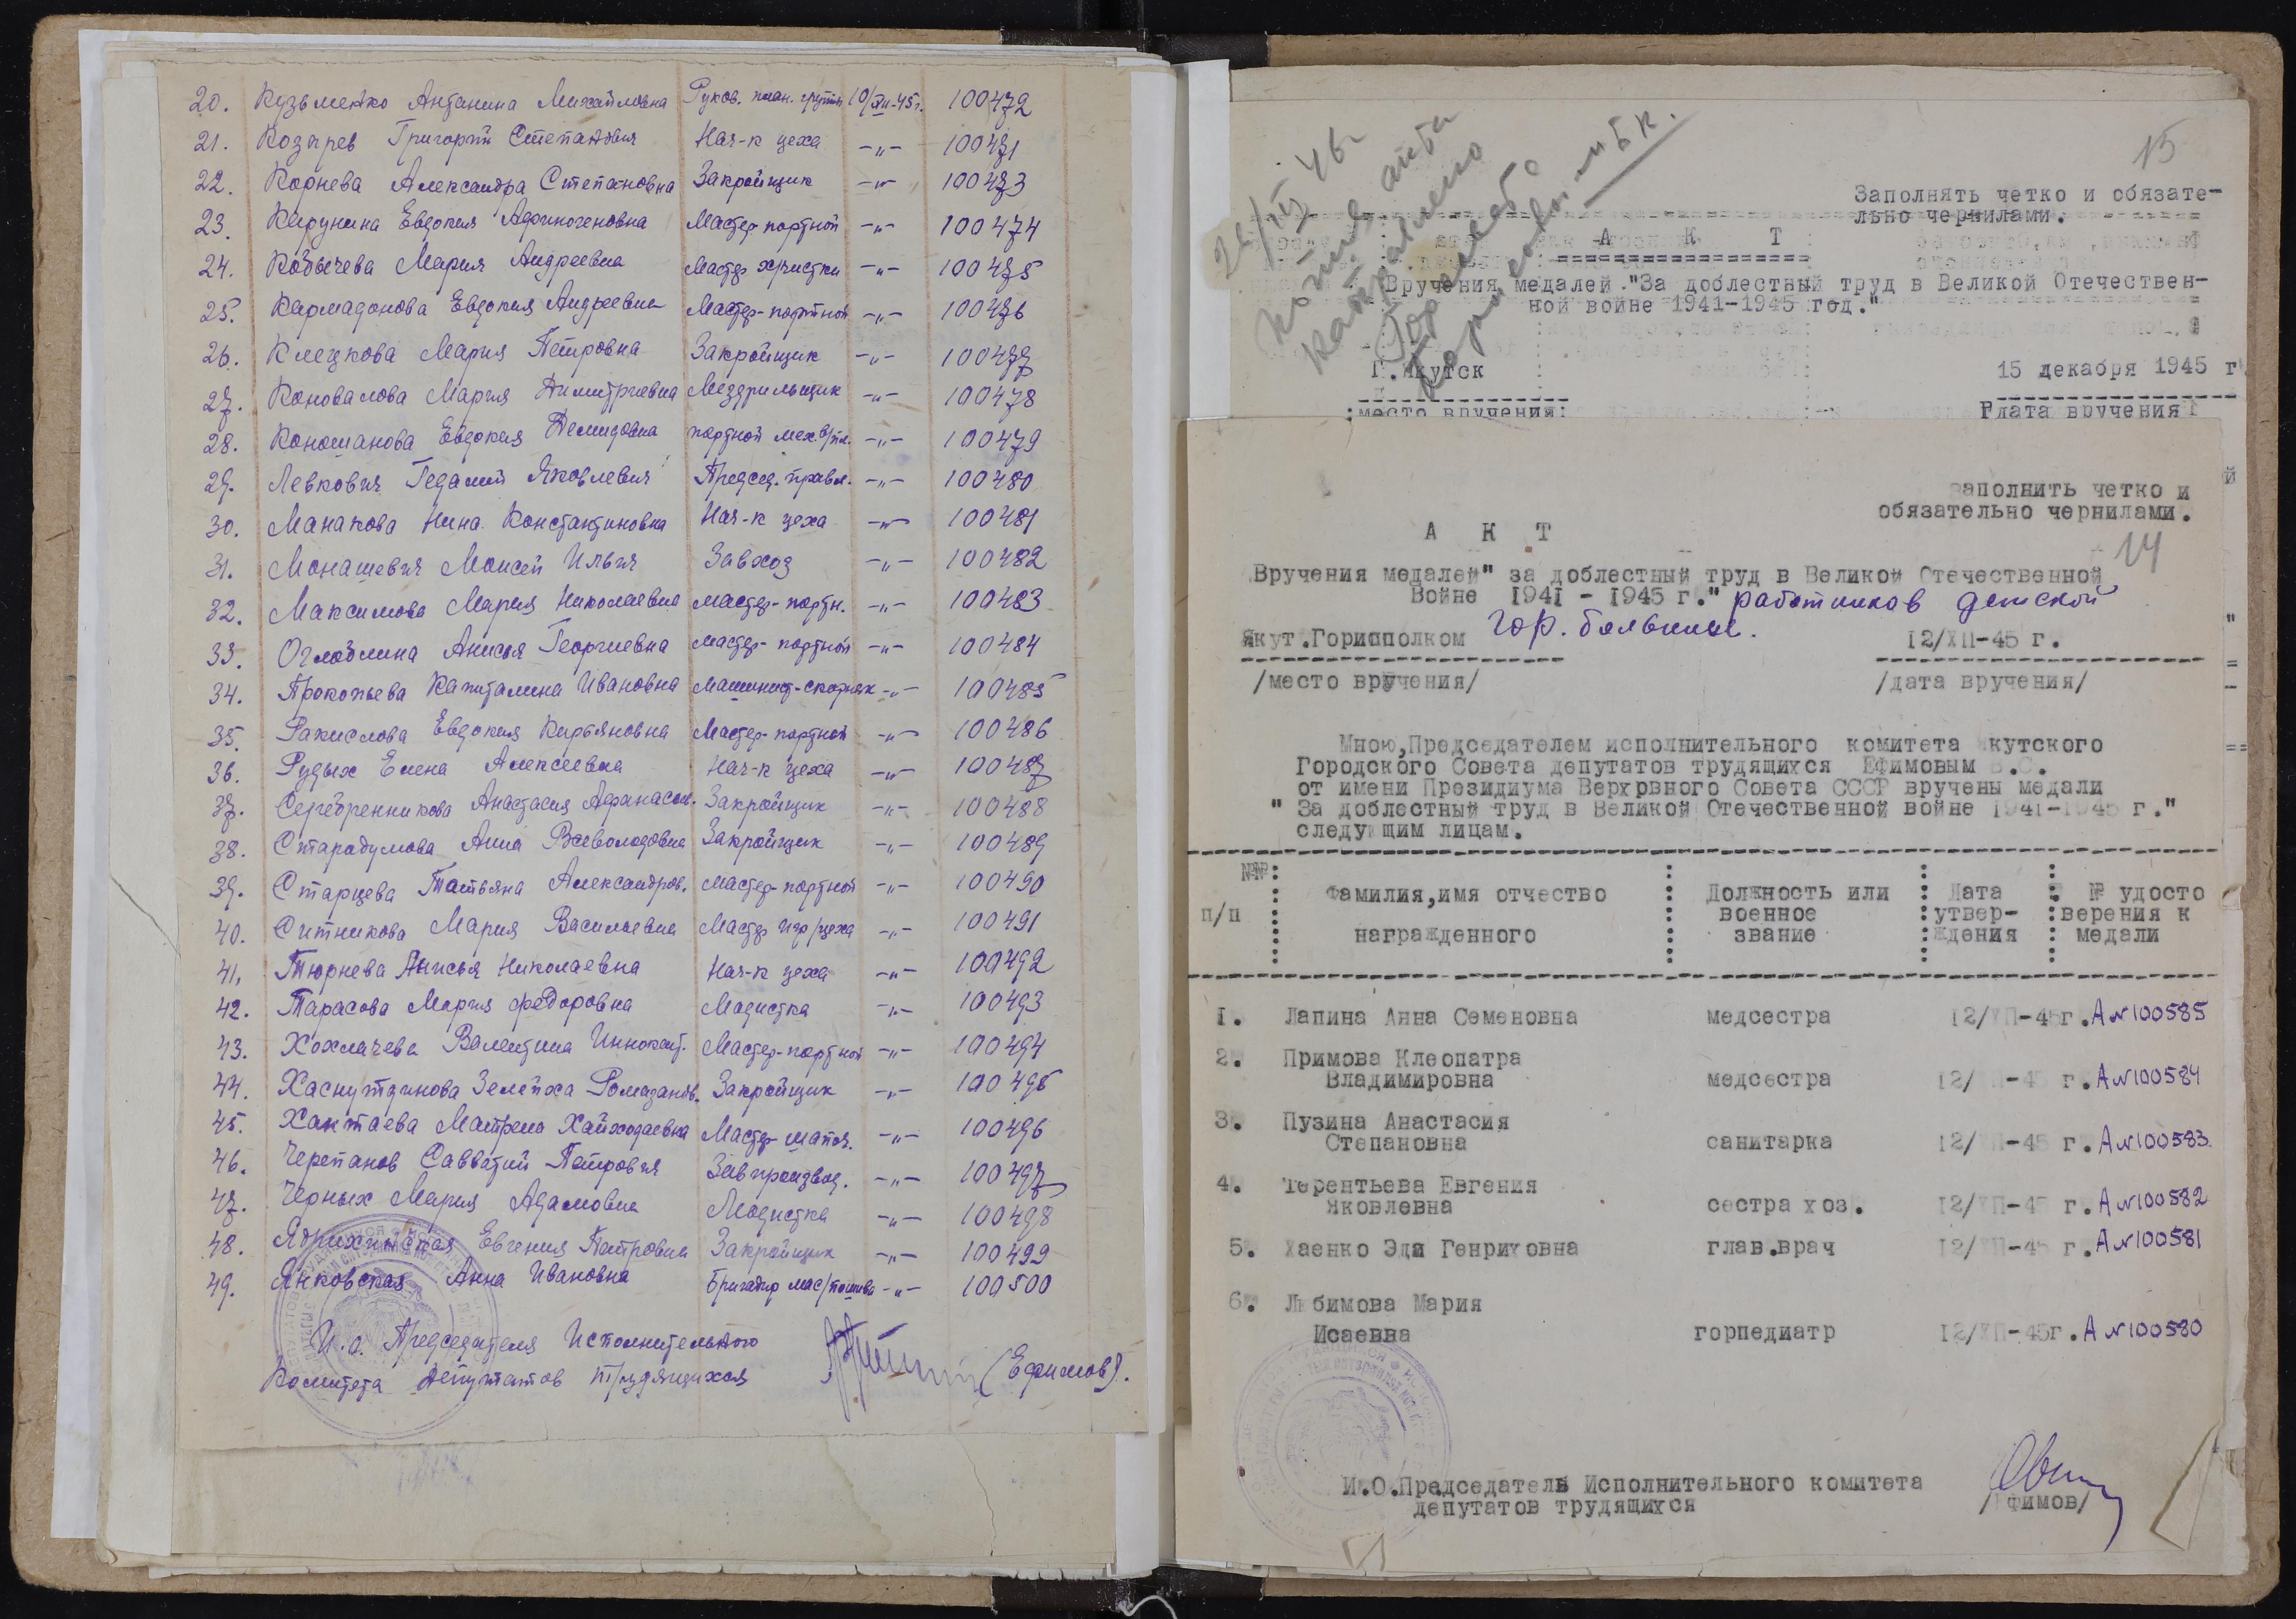 20. Кузьменко Антанина Михайловна Руков. план. группы 10/XII-45г. 100472
21. Козырев Григорий Степанович Нач-к цеха -"- 100471
22. Корнева Александра Степановна Закройщик -"- 100473
23. Кирунина Евдокия Афиногеновна Мастер портной -"- 100474
24. Кобычева Мария Андреевна Мастер х/чистки -"- 100475
25. Кармадонова Евдокия Андреевна Мастер-портной -"- 100476
26. Клецкова Мария Петровна Закройщик -"- 100477
27. Коновалова Мария Димитриевна Мездрильщик -"- 100478
28. Коношанова Евдокия Демидовна портной мех. -"- 100479
29. Левкович Гедалий Яковлевич Председ. правл. -"- 100480
30. Манакова Нина Константиновна Нач-к цеха -"- 100481
31. Монашевич Моисей Ильич Завхоз -"- 100482
32. Максимова Мария Николаевна мастер-портн. -"- 100483
33. Оглоблина Анисья Георгиевна мастер-портной -"- 100484
34. Прокопьева Капиталина Ивановна Машинист-скорняк -"- 100485
35. Ракислова Евдокия Кирьяновна Мастер-портной -"- 100486
36. Рудых Елена Алексеевна Нач-к цеха -"- 100487
37. Серебренникова Анастасия Афанасьев. Закройщик -"- 100488
38. Стародумова Анна Всеволодовна Закройщик -"- 100489
39. Старцева Татьяна Александров. мастер-портной -"- 100490
40. Ситникова Мария Васильевна Мастер игр/цеха -"- 100491
41. Тюрнева Анисья Николаевна Нач-к цеха -"- 100492
42. Тарасова Мария Федоровна Модистка -"- 100493
43. Хохлачева Валентина Иннокент. Мастер-портной -"- 100494
44. Хаснутдинова Зелейха Ромазанов. Закройщик -"- 100495
45. Хантаева Матрена Хайходаевна Мастер-шапоч. -"- 100496
46. Черепанов Савватий Петрович Завпроизвод. -"- 100497
47. Черных Мария Адамовна Модистка -"- 100498
48. Ядрихинская Евгения Петровна Закройщик -"- 100499
49. Янковская Анна Ивановна Бригадир мас/пошива -"- 100500
И.о. Председателя Исполнительного
Комитета Депутатов трудящихся (Ефимов).
15
26/XII 46г
копия акта
направлено
Горлекабо
Заполнять четко и обязате-
льно чернилами.
А К Т
Вручения медалей "За доблестный труд в Великой Отечествен-
ной войне 1941-1945 год."
Г.Якутск 15 декабря 1945 г
место вручения дата вручения
заполнить четко и
обязательно чернилами.
14
А К Т
Вручения медалей" за доблестный труд в Великой Отечественной
Войне 1941 - 1945 г." работников детской
гор. больницы.
Якут.Горисполком 12/XII-45 г.
/место вручения/ /дата вручения/
Мною,Председателем исполнительного комитета Якутского
Городского Совета депутатов трудящихся Ефимовым В.С.
от имени Президиума Верхрвного Совета СССР вручены медали
" За доблестный труд в Великой Отечественной войне 1941-1945 г."
следующим лицам.
№№ п/п Фамилия,имя отчество награжденного Должность или военное звание Дата утверждения № удостоверения к медали
1. Лапина Анна Семеновна медсестра 12/XII-45г. А№100585
2. Примова Клеопатра
Владимировна медсестра 12/XII-45 г. А№100584
3. Пузина Анастасия
Степановна санитарка 12/XII-45 г. А№100583
4. Терентьева Евгения
Яковлевна сестра хоз. 12/XII-45 г. А№100582
5. Хаенко Эди Генриховна глав.врач 12/XII-45 г. А№100581
6. Любимова Мария
Исаевна горпедиатр 12/XII-45г. А№100580
И.О.Председатель Исполнительного комитета
депутатов трудящихся /Ефимов/